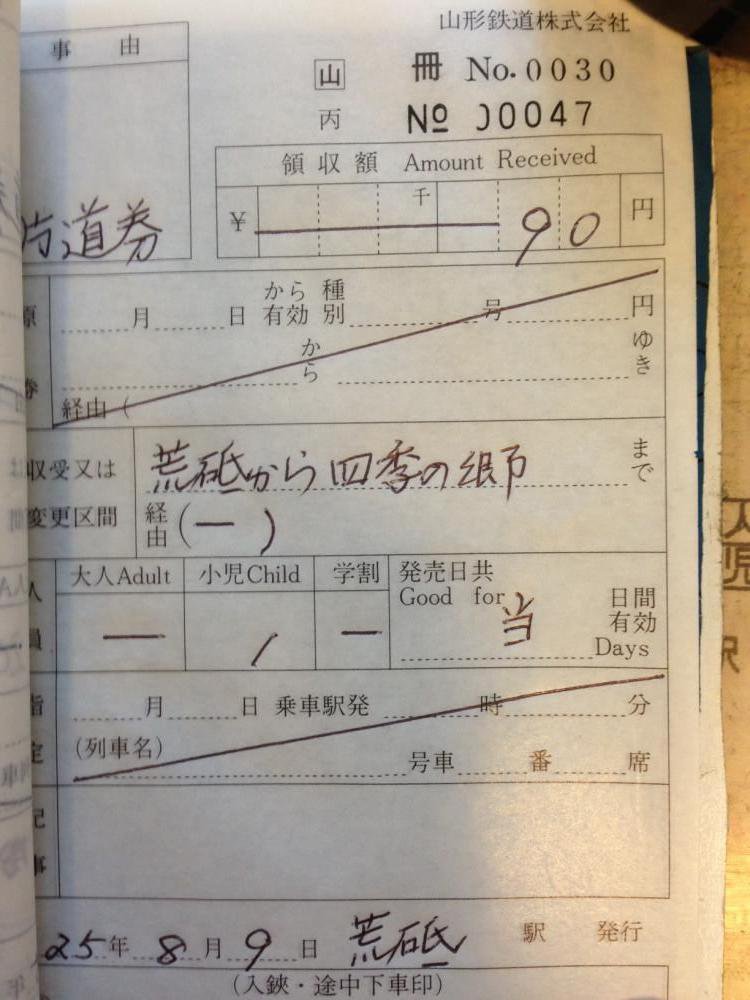 山形鉄道株式会社
事由
山 冊 No.0030
丙 № 00047
領収額 Amount Received
千
¥ 90 円
片道券
月 日 から有効 種別 号 円
から ゆき
経由(
収受又は 荒砥から四季の郷 まで
変更区間 経由(ー)
大人Adult 小児Child 学割 発売日共
Good for 当 日間
有効
Days
ー 1 ー
月 日 乗車駅発 時 分
(列車名) 号車 番 席
記事
25年 8月 9日 荒砥 駅 発行
(入鋏・途中下車印)